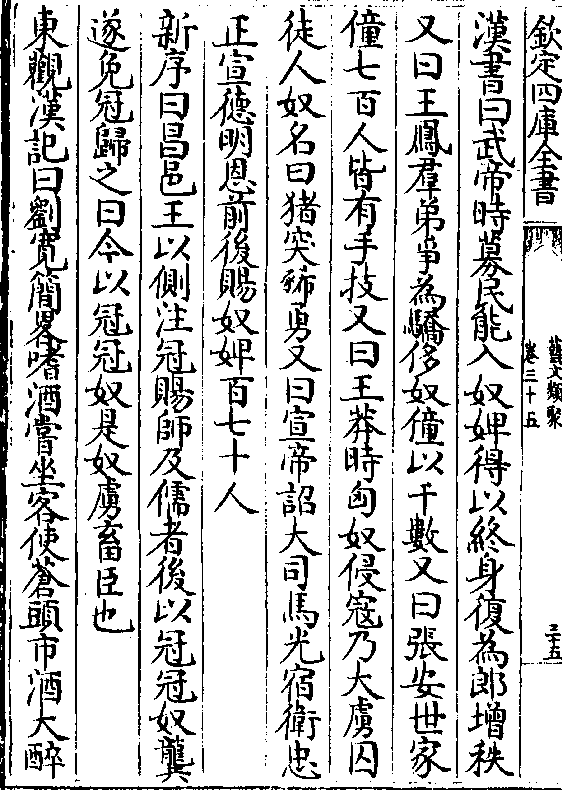 欽定四庫全書
藝文類聚
卷三十五
三十五
漢書曰武帝時募民能入奴婢得以終身復為郎增秩
又曰王鳳羣弟爭為驕侈奴僮以千數又曰張安世家
僮七百人皆有手技又曰王莽時匈奴侵寇乃大虜囚
徒人奴名曰猪突豨勇又曰宣帝詔大司馬光宿衛忠
正宣德明恩前後賜奴婢百七十人
新序曰昌邑王以側注冠賜師及儒者後以冠冠奴龔
遂免冠歸之曰今以冠冠奴是奴虜畜臣也
東觀漢記曰劉寬簡畧嗜酒嘗坐客使蒼頭市酒大醉